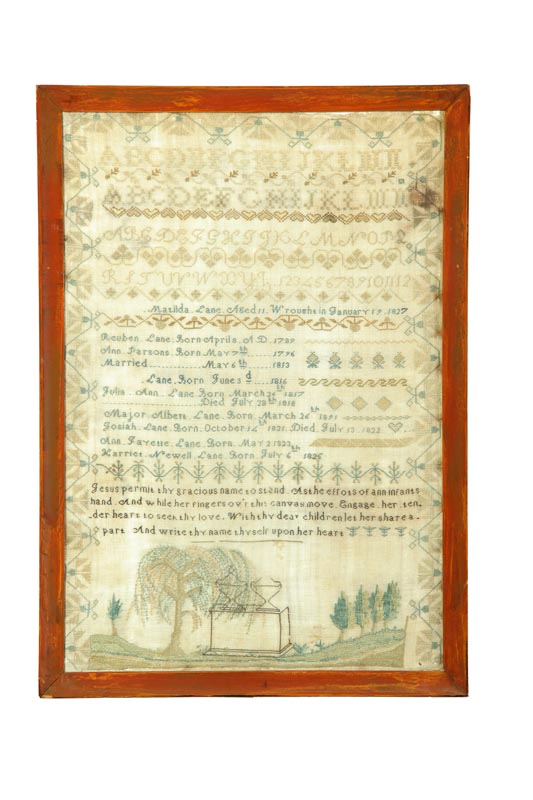 ABCDEFGHIJKLM
ABCDEFGHIJKLM
ABCDEFGHIJKLMNOPQ
RSTUVWXYZ 123456789101112
Matilda Lane Aged 11. Wrought in January 19. 1827
Reuben Lane Born April 2. A.D. 1789
Ann Parsons Born May 7th 1796
Married May 6th 1813
Lane Born June 3d 1816
Julia Ann Lane Born March 24th 1817
Died July 28th 1818
Major Albert Lane Born March 26th
Josiah Lane Born October 14th 1821. Died July 13. 1822
Ann Fayette Lane Born May 2 1823
Harriet Newell Lane Born July 6th 1825
Jesus permit thy gracious name to stand. As the efforts of ann infants
hand. And while her fingers ov'r this canvas move. Engage her ten
der heart to seek thy love. With thy dear children let her share a
part And write thy name thyself upon her heart